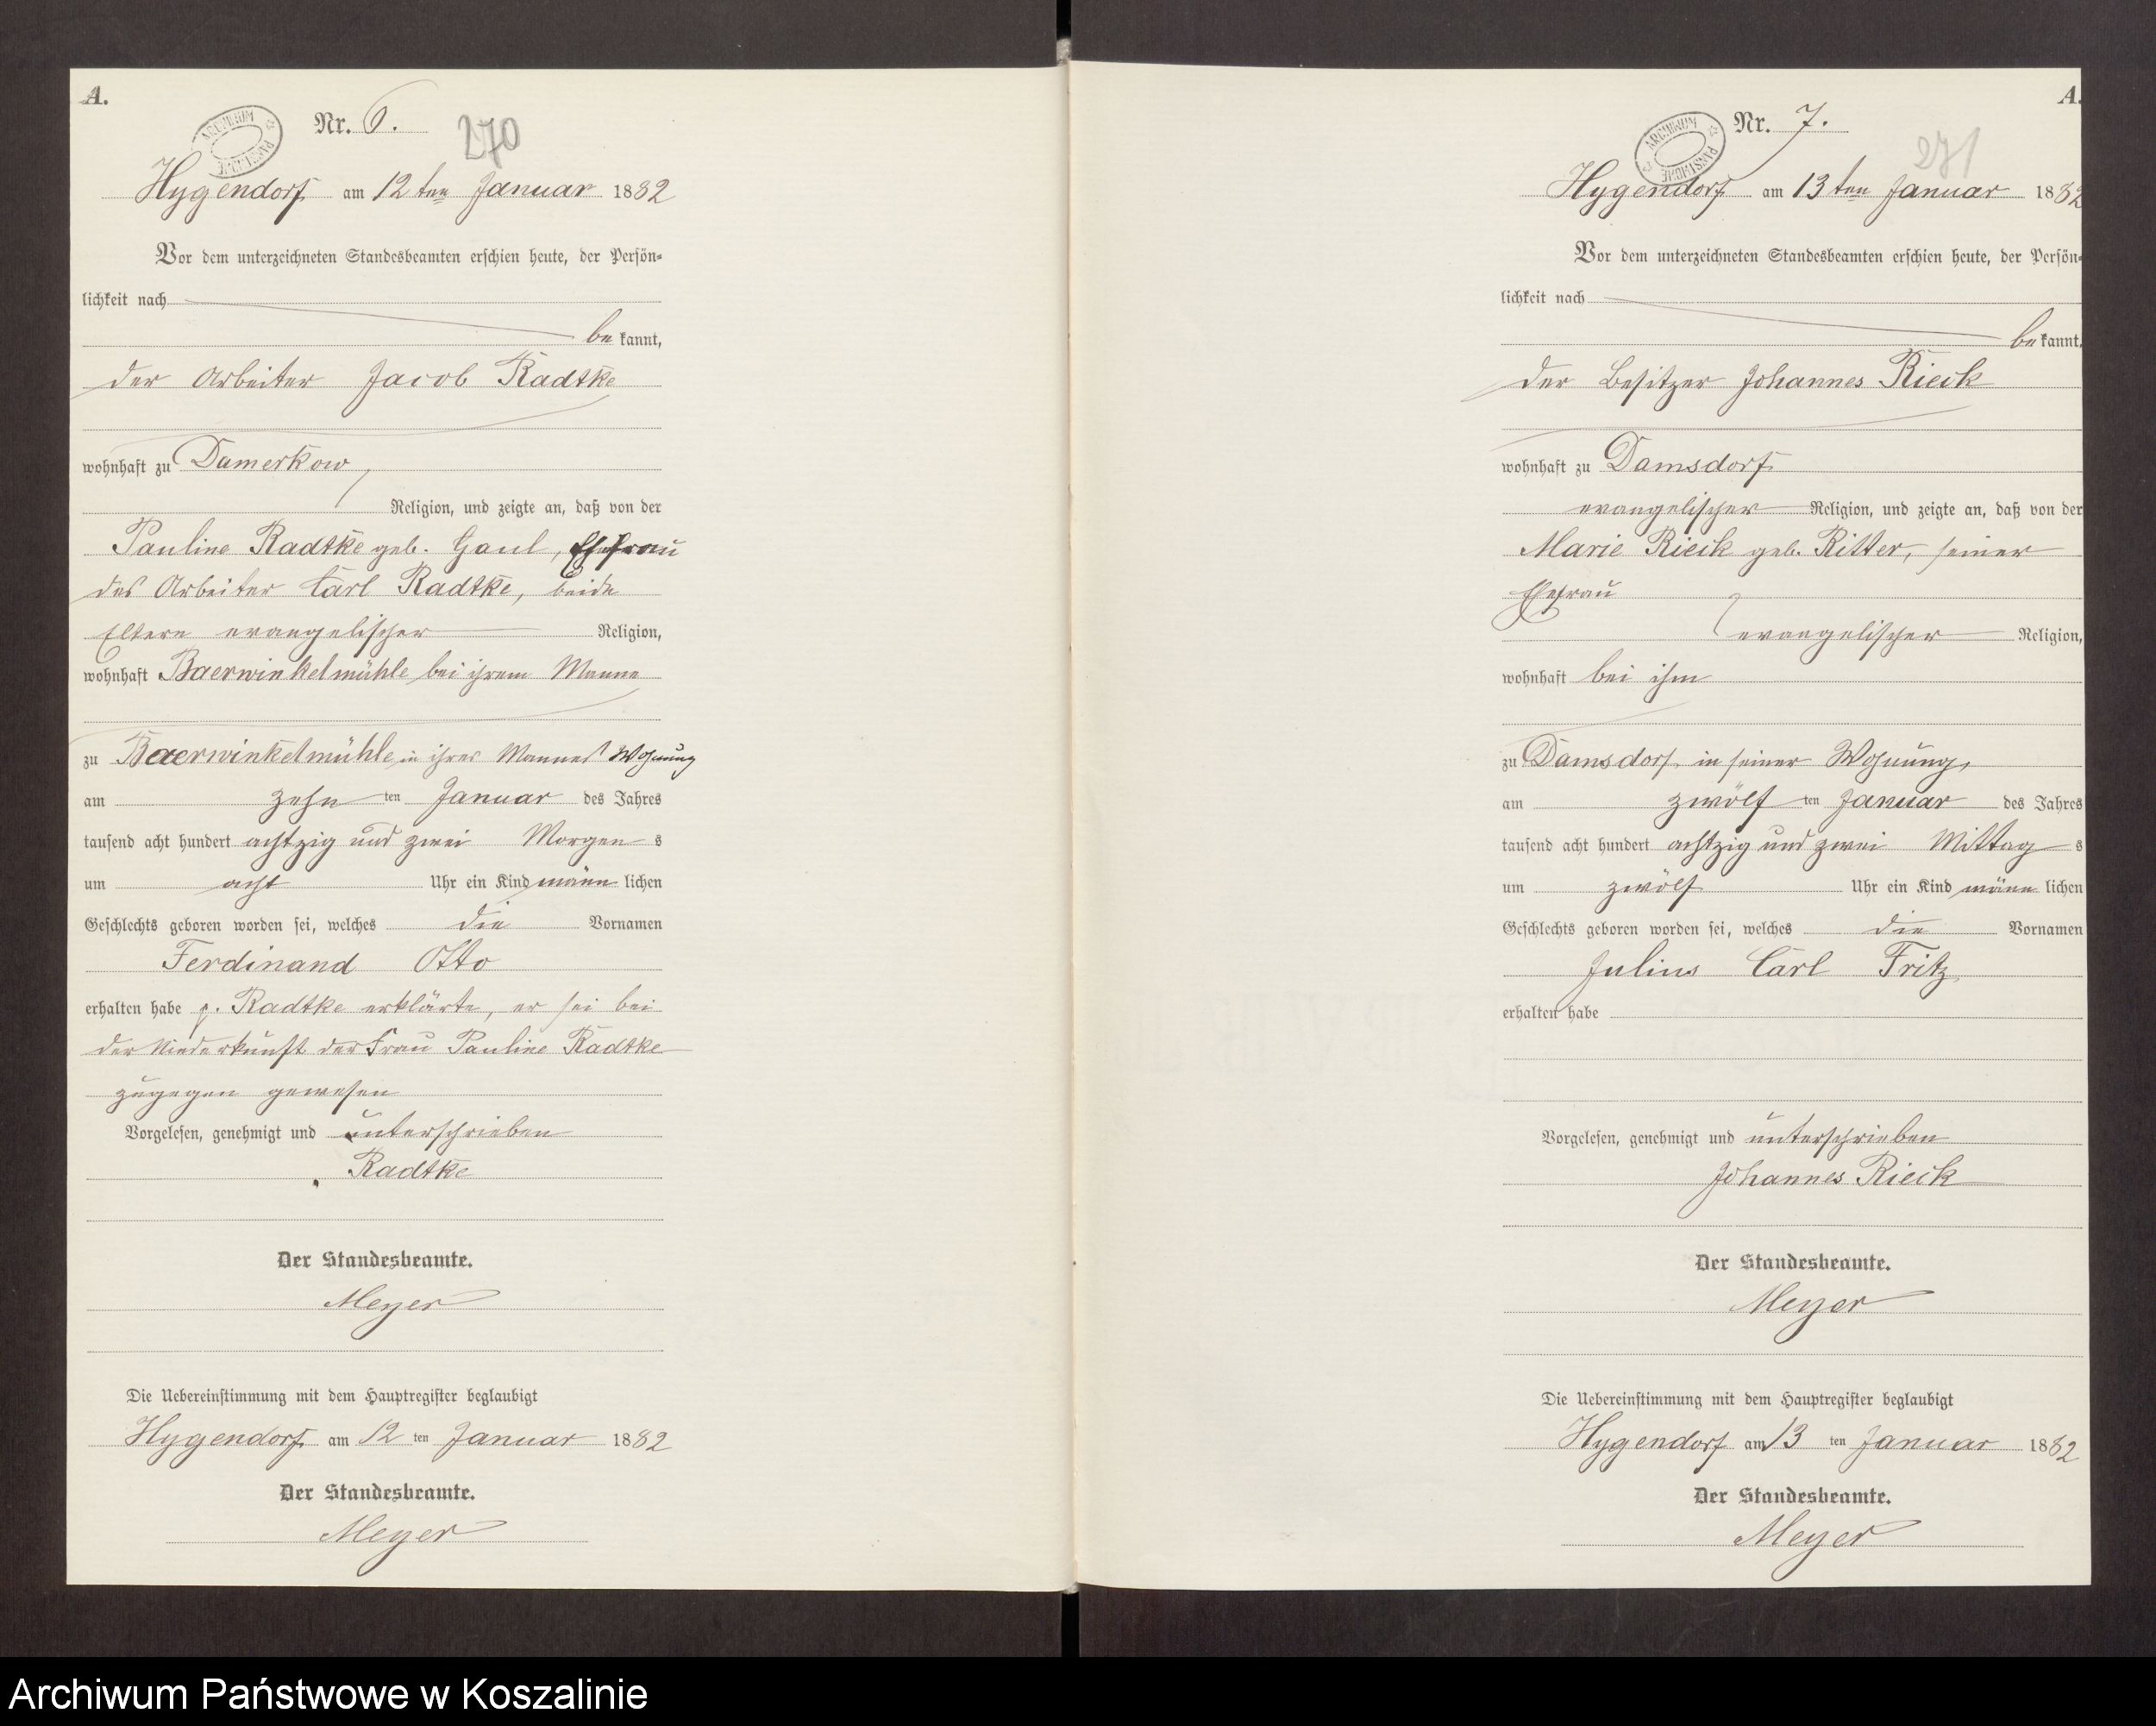 A.
ARCHIWUM PAŃSTWOWE
Nr. 6.
270
Hygendorf am 12ten Januar 1882
Vor dem unterzeichneten Standesbeamten erschien heute, der Persön-
lichkeit nach
be kannt,
der Arbeiter Jacob Radtke
wohnhaft zu Damerkow,
Religion, und zeigte an, daß von der
Pauline Radtke geb. Gaul, Ehefrau
des Arbeiter Carl Radtke, beide
Eltern evangelischer Religion,
wohnhaft Baerwinkelmühle bei ihrem Manne
zu Baerwinkelmühle in ihres Mannes Wohnung
am zehn ten Januar des Jahres
tausend acht hundert achtzig und zwei Morgen s
um acht Uhr ein Kind männ lichen
Geschlechts geboren worden sei, welches die Vornamen
Ferdinand Otto
erhalten habe p. Radtke erklärte, er sei bei
der Niederkunft der Frau Pauline Radtke
zugegen gewesen
Vorgelesen, genehmigt und unterschrieben
Radtke
Der Standesbeamte.
Meyer
Die Uebereinstimmung mit dem Hauptregister beglaubigt
Hygendorf am 12 ten Januar 1882
Der Standesbeamte.
Meyer
A.
ARCHIWUM PAŃSTWOWE
Nr. 7.
271
Hygendorf am 13ten Januar 1882
Vor dem unterzeichneten Standesbeamten erschien heute, der Persön-
lichkeit nach
be kannt,
der Besitzer Johannes Rieck
wohnhaft zu Damsdorf
evangelischer Religion, und zeigte an, daß von der
Marie Rieck geb. Ritter, seiner
Ehefrau
evangelischer Religion,
wohnhaft bei ihm
zu Damsdorf in seiner Wohnung,
am zwölf ten Januar des Jahres
tausend acht hundert achtzig und zwei Mittag s
um zwölf Uhr ein Kind männ lichen
Geschlechts geboren worden sei, welches die Vornamen
Julius Carl Fritz
erhalten habe
Vorgelesen, genehmigt und unterschrieben
Johannes Rieck
Der Standesbeamte.
Meyer
Die Uebereinstimmung mit dem Hauptregister beglaubigt
Hygendorf am 13 ten Januar 1882
Der Standesbeamte.
Meyer
Archiwum Państwowe w Koszalinie